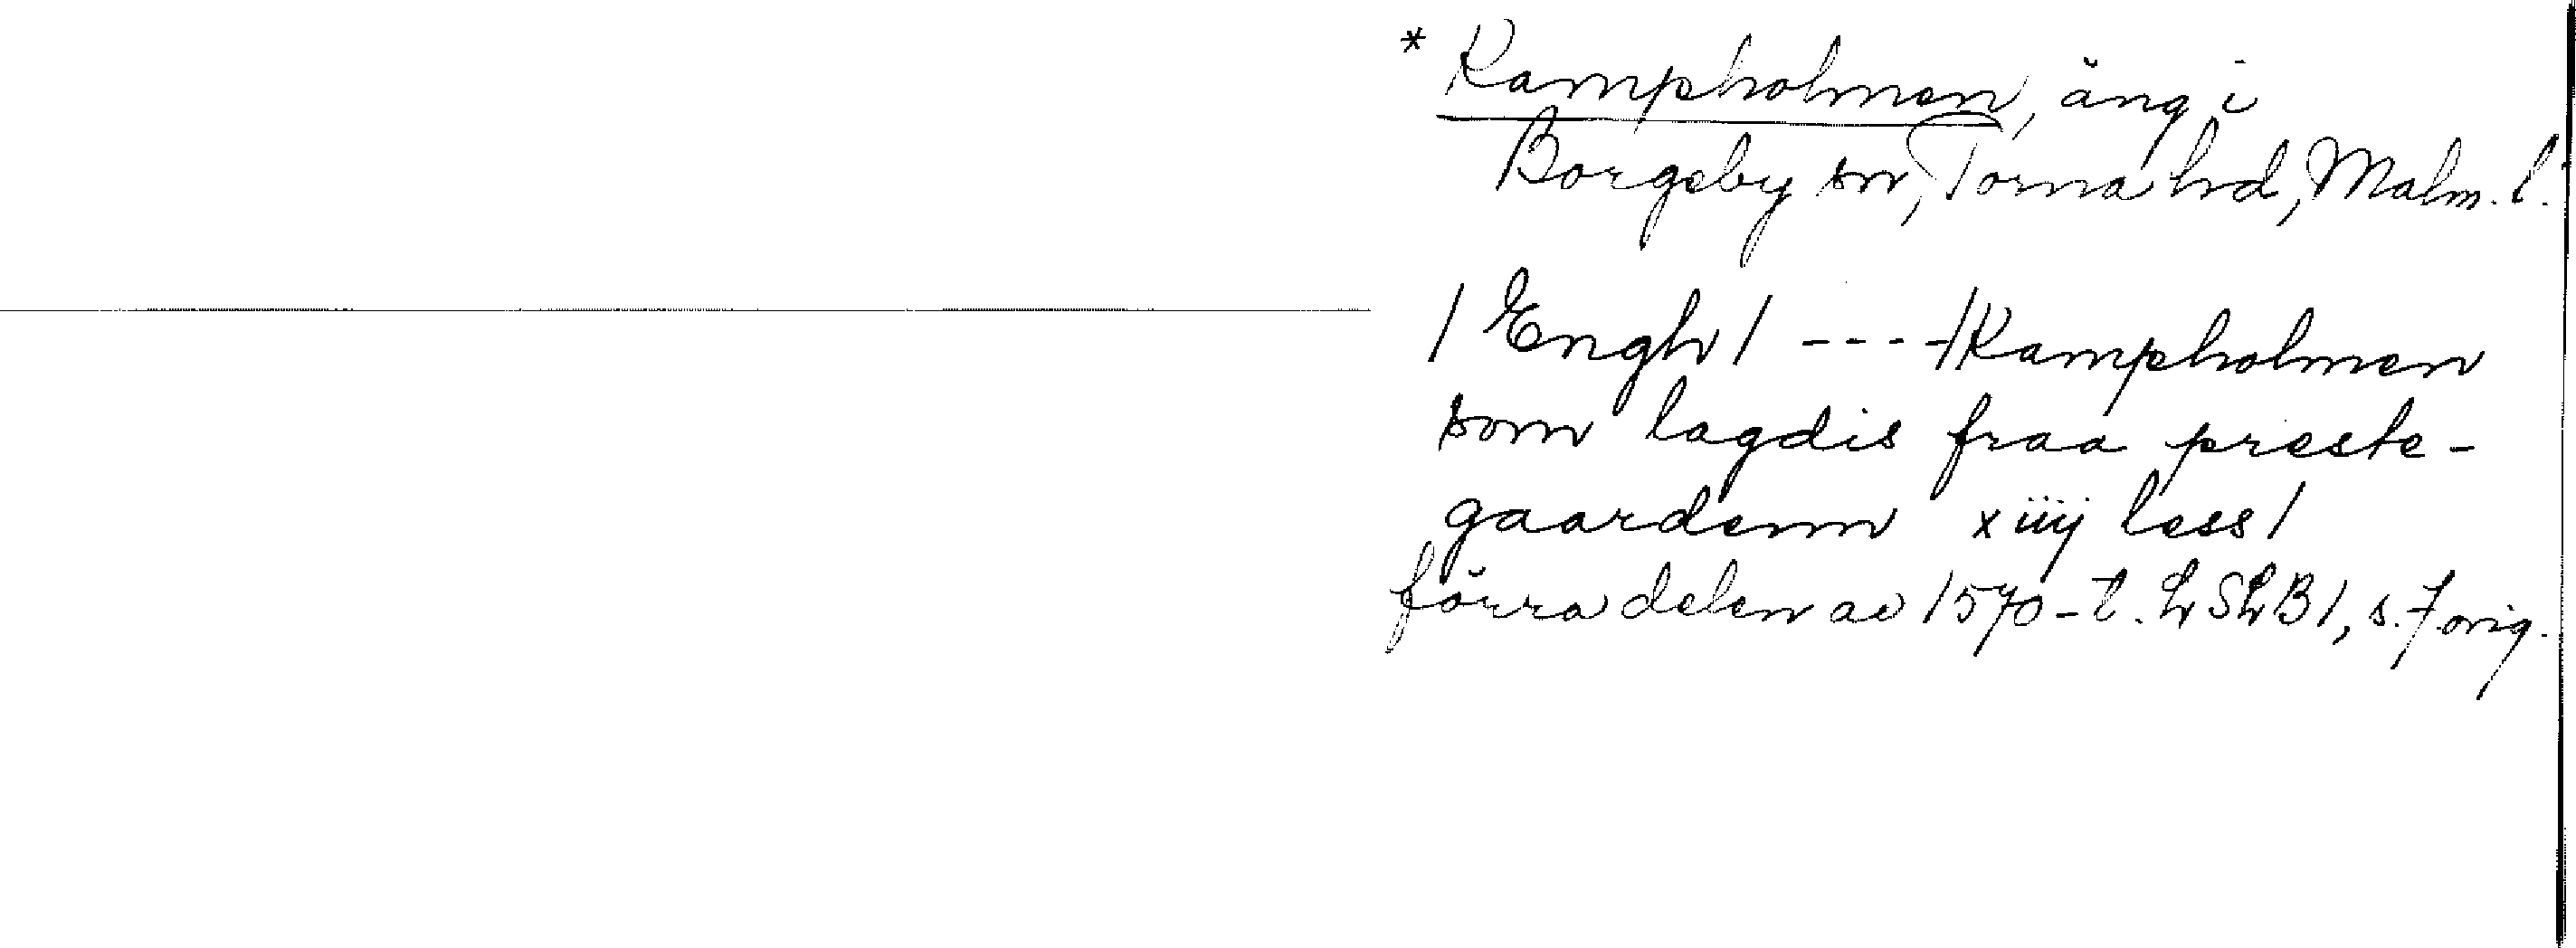 * Kampholmen, äng i
Borgeby sn, Torna hd, Malm. l.
/ Engh / ---- / Kampholmen
som lagdis fraa preste-
gaardenn xiiij less /
förra delen av 1570-t. LSLB 1, s. 7 orig.